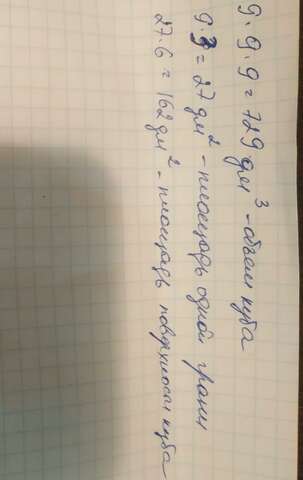 9·9·9=729 дм³ - объем куба
9·3=27 дм² - площадь одной грани
27·6=162 дм² - площадь поверхности куба